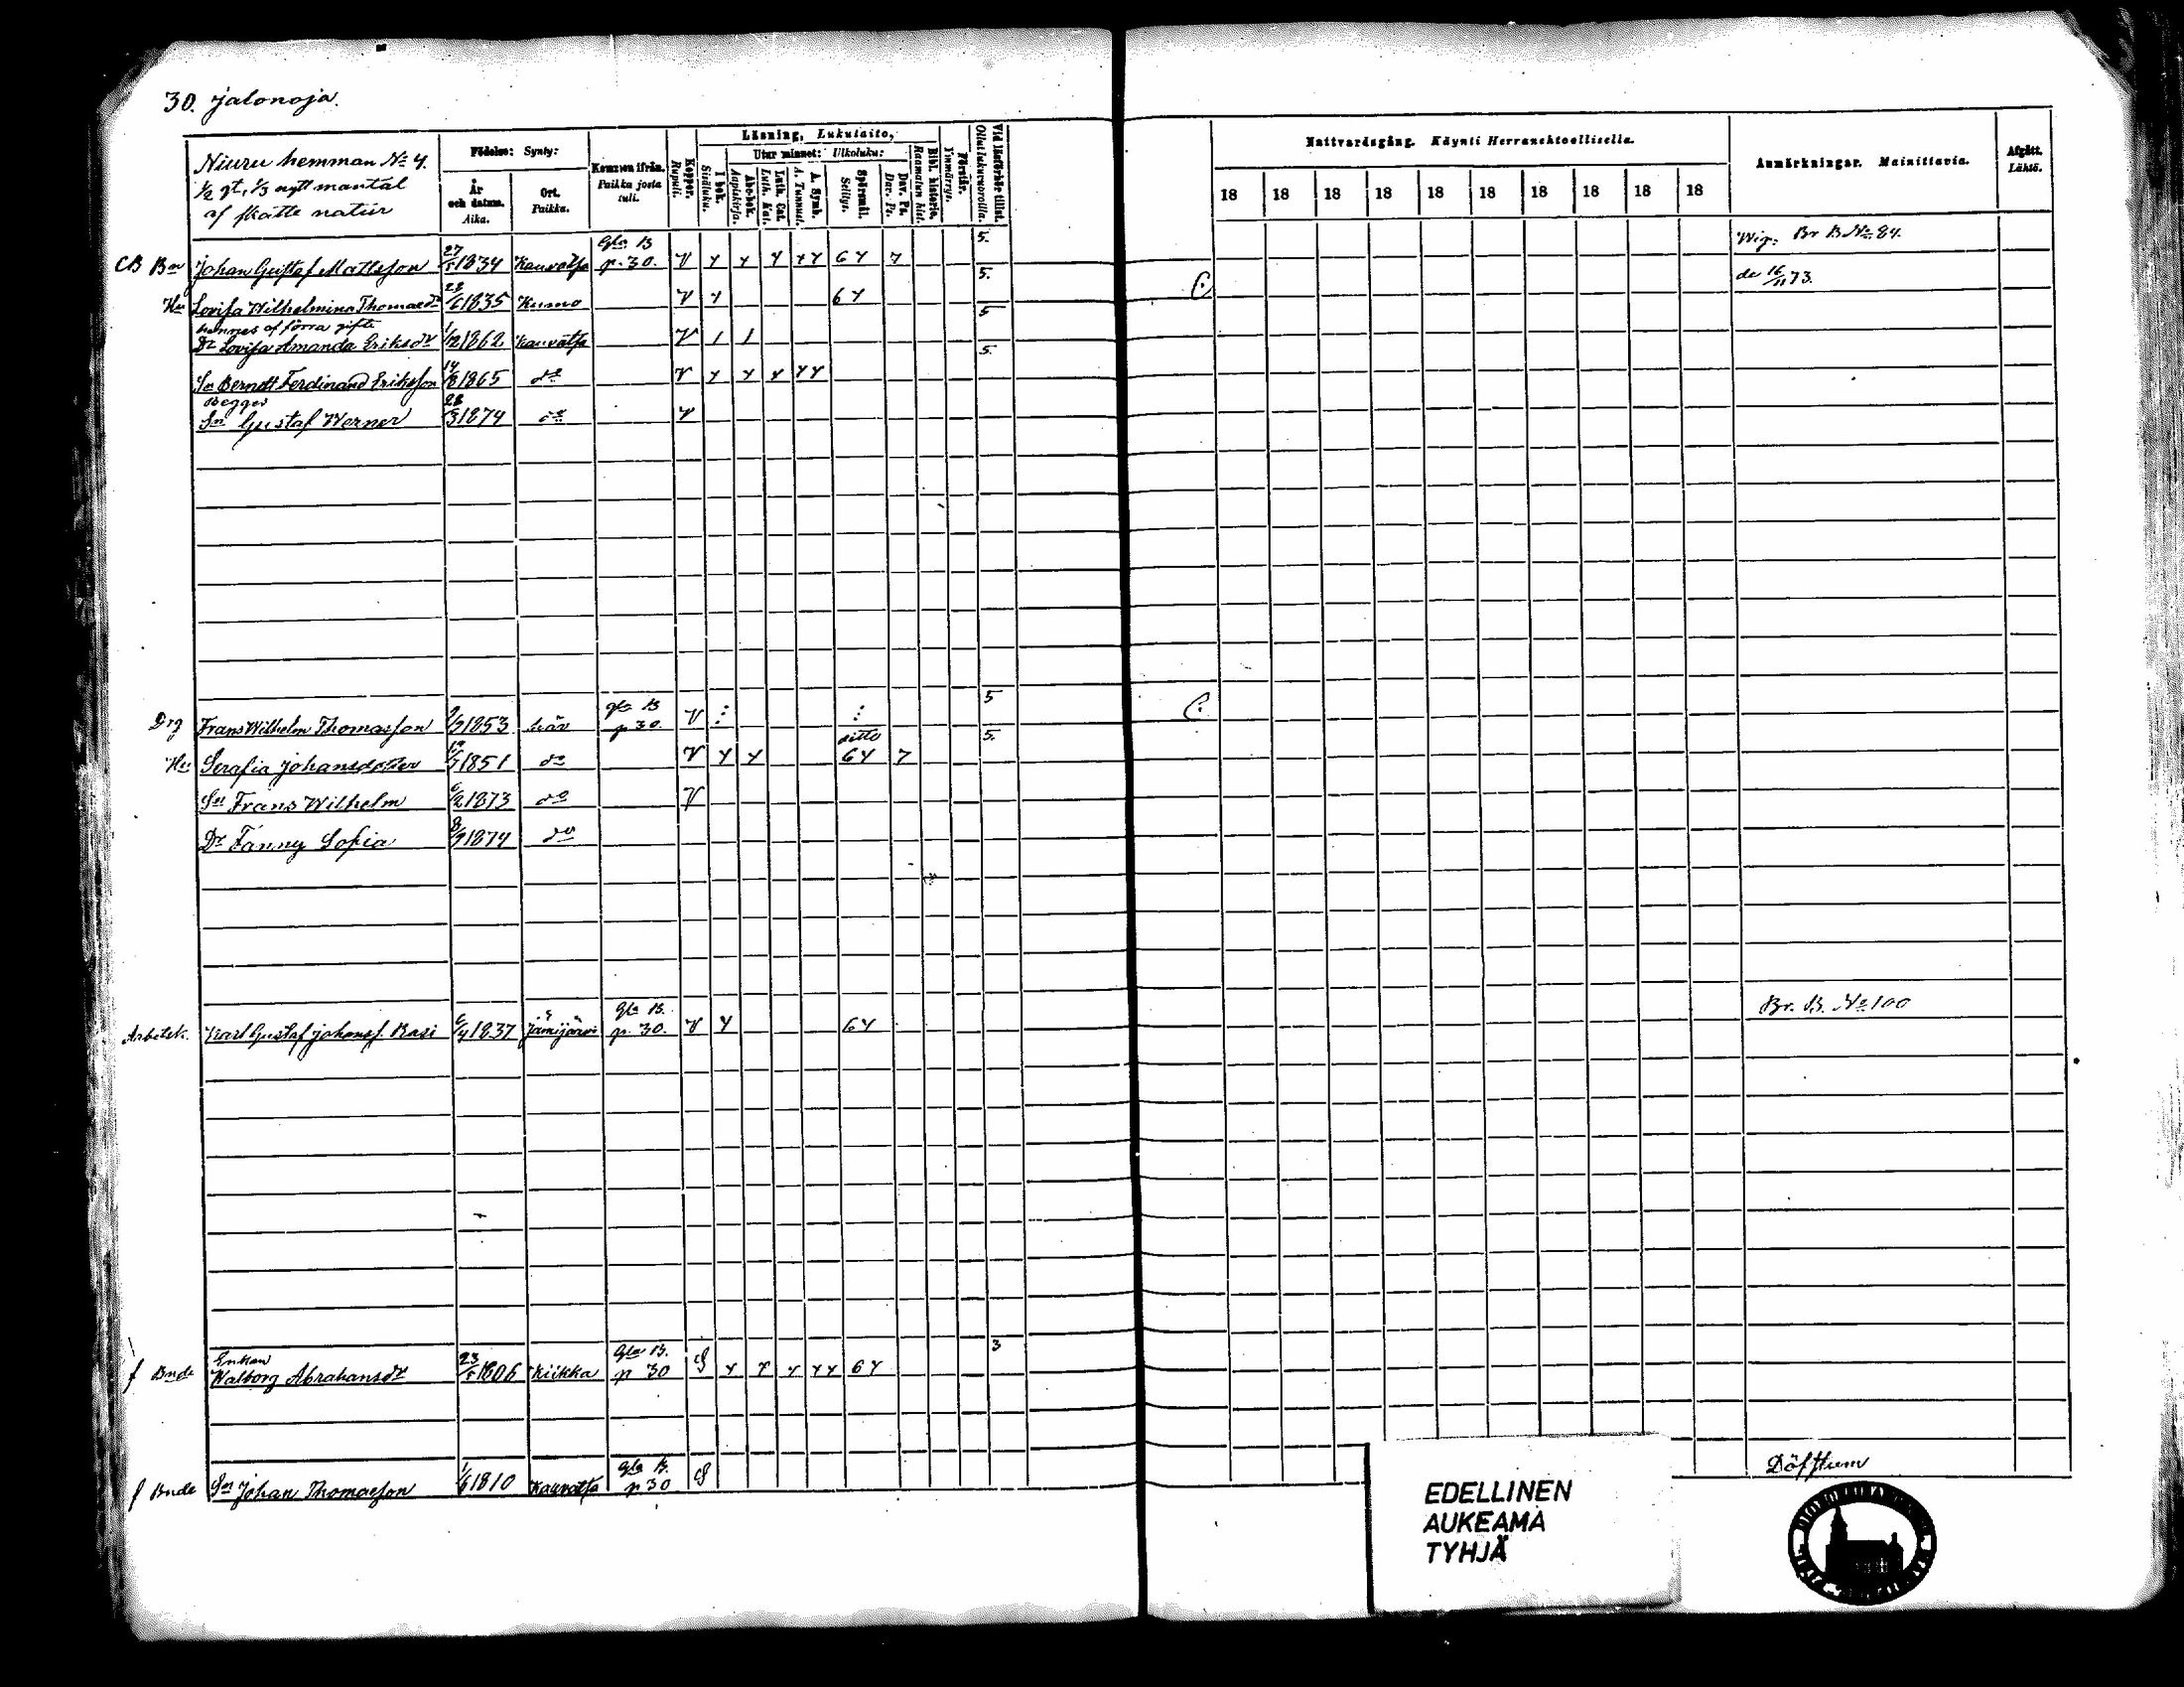 30. Jalonoja.
Niuru hemman No 4.
1/2 gt, 1/3 nytt mantal
af skatte natur
Födelse: Synty:
År och datum. Aika.
Ort. Paikka.
Kommen ifrån. Paikka josta tuli.
Koppor. Rupuli.
Läsning, Lukutaito,
I bok. Sisäluku.
Utur minnet: Ulkoluku:
Abc-bok. Aapiskirja.
Luth. Cat. Luth. Kat.
A. Symb. A. Tunnust.
Spörsmål. Selitys.
Dav. Ps. Dav. Ps.
Bibl. historia. Raamatun hist.
Förstår. Ymmärrys.
Vid läsförhör tillst. Ollut lukuvuoroilla.
Nattvardsgång. Käynti Herranehtoollisella.
18 18 18 18 18 18 18 18 18 18
Anmärkningar. Muistuttavia.
Afgått. Lähtö.
CB Bn Johan Gustaf Mattsson 27/5 1834 Kauvatsa Gla B p. 30. V y y y yy 6 y 7 5. Wig. Br B No 84.
Hu Lovisa Wilhelmina Thomasdr 28/6 1835 Kumo V y 6 y 5. de 16/11 73.
hennes af förra gifte
Dr Lovisa Amanda Eriksdr 1/2 1862 Kauvatsa V 1 1 5
Sn Berndt Ferdinand Eriksson 14/8 1865 do V y y y yy 5.
Begges
Sn Gustaf Werner 28/3 1874 do V
Drg Frans Wilhelm Thomasson /9 1853 här gla B p 30. V 5
Hu Serafia Johansdotter /7 1851 do V y y ditto 6 y 7 5.
Sn Frans Wilhelm 6/2 1873 do V
Dr Fanny Sofia 8/9 1874 do
Arbetsk. Karl Gustaf Johanss. Rasi 6/4 1837 Jämijärvi Gla B. p. 30. V y 6 y Br. B. No 100
f Bnde Enkan
Walborg Abrahamsdr 23/5 1806 Kiikka Gla B. p 30 y y y yy 6 y 3
f Bnde Sn Johan Thomasson 1/6 1810 Kauvatsa Gla B. p 30 Döfstum
EDELLINEN
AUKEAMA
TYHJÄ